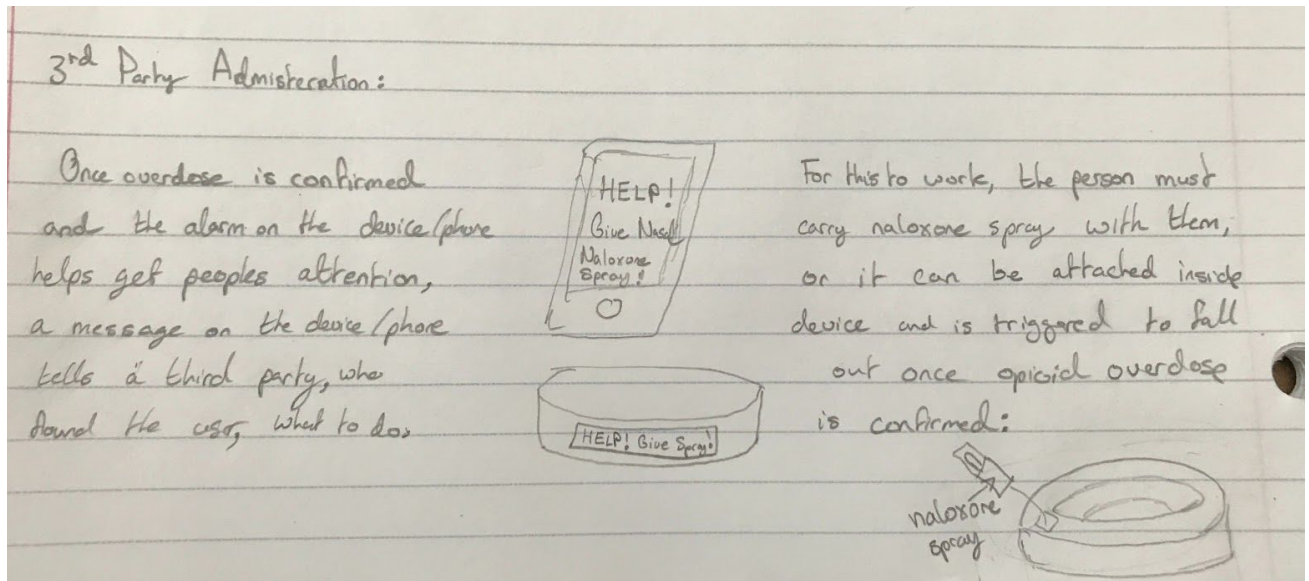 3rd Party Admisteration:
Once overdose is confirmed
and the alarm on the device/phone
helps get peoples attention,
a message on the device/phone
tells a third party, who
found the user, what to do.
HELP!
Give Nasal
Naloxone
Spray!
HELP! Give Spray!
For this to work, the person must
carry naloxone spray with them,
or it can be attached inside
device and is triggered to fall
out once opioid overdose
is confirmed:
naloxone
spray